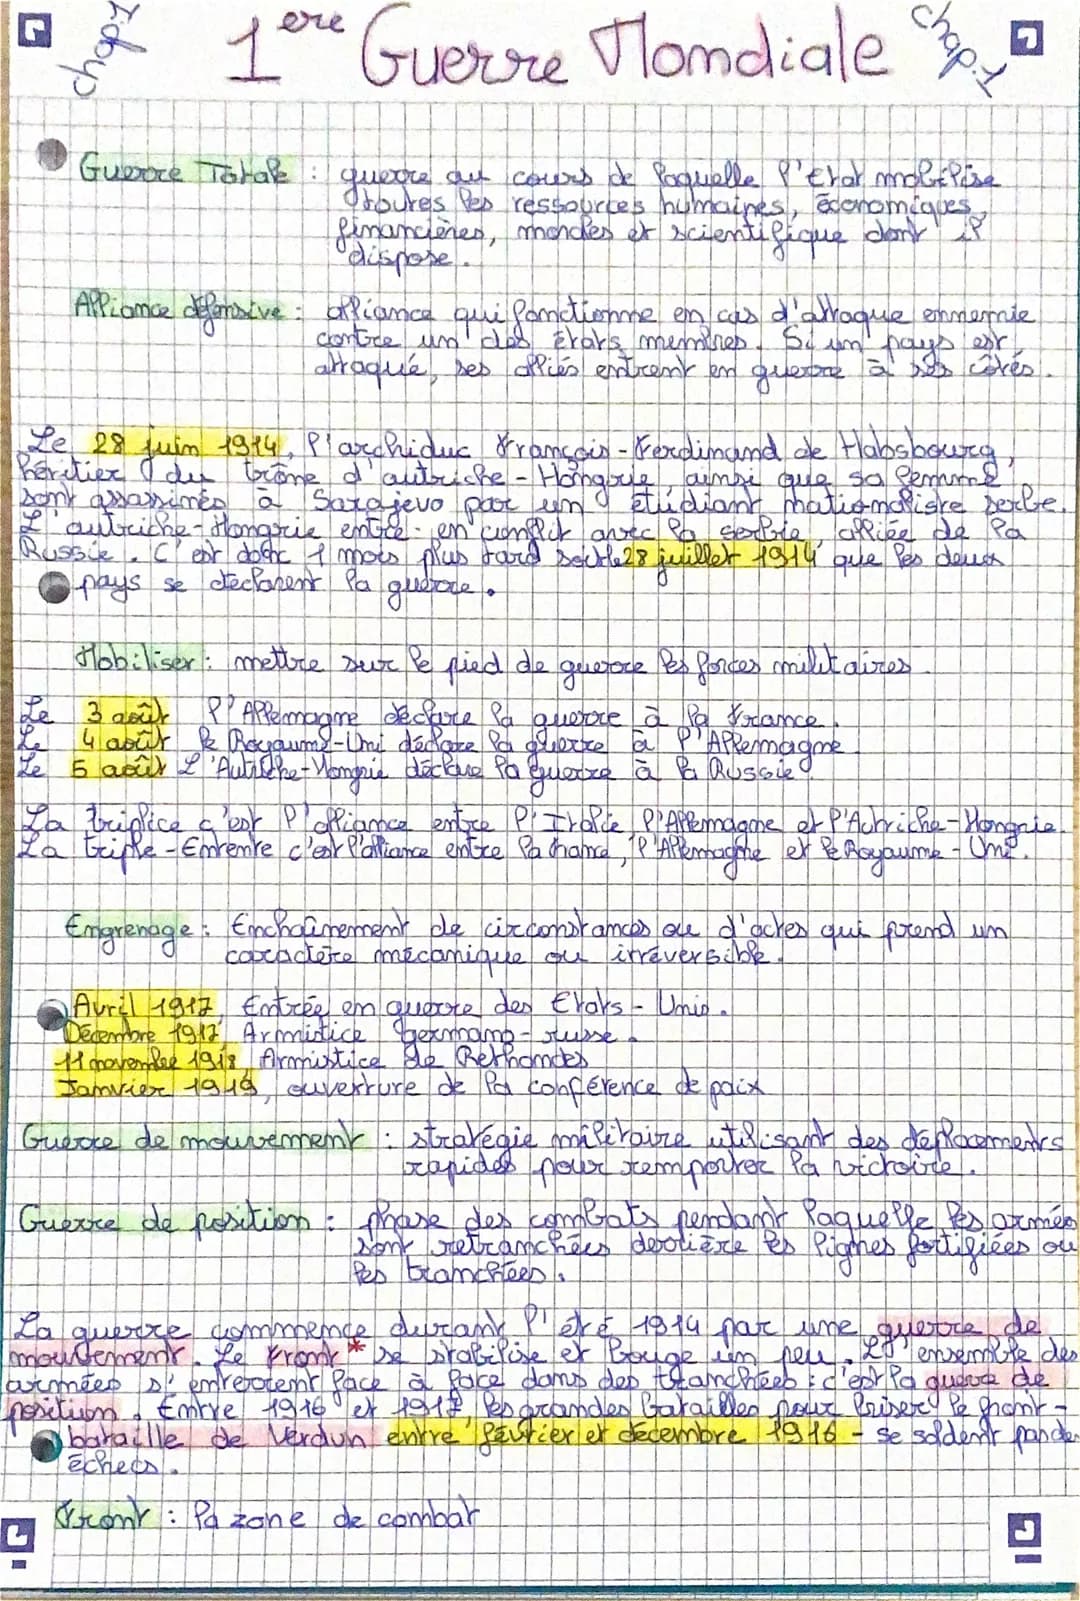 chap.1
1ere Guerre Mondiale
chap.1
Guerre Totale : guerre au cours de laquelle l'Etat mobilise
toutes les ressources humaines, économiques,
financières, morales et scientifique dont il
dispose.
Alliance défensive : alliance qui fonctionne en cas d'attaque ennemie
contre un des États membres. Si un pays est
attaqué, ses alliés entrent en guerre à ses côtés.
Le 28 juin 1914, l'archiduc François-Ferdinand de Habsbourg,
héritier du trône d'autriche-Hongrie, ainsi que sa femme
sont assassinés à Sarajevo par un étudiant nationaliste serbe.
L'autriche-Hongrie entre en conflit avec la serbie, alliée de la
Russie. C'est donc 1 mois plus tard 28 juillet 1914 que les deux
pays se déclarent la guerre.
Mobiliser : mettre sur le pied de guerre les forces militaires
Le 3 août l'Allemagne déclare la guerre à la France.
Le 4 août le Royaume-Uni déclare la guerre à l'Allemagne
Le 5 août L'Autriche-Hongrie déclare la guerre à la Russie.
La triplice c'est l'alliance entre l'Italie, l'Allemagne et l'Autriche-Hongrie.
La triple-Entente c'est l'alliance entre la France, l'Allemagne et le Royaume-Uni.
Engrenage : Enchaînement de circonstances ou d'actes qui prend un
caractère mécanique ou irréversible.
Avril 1917, Entrée en guerre des Etats-Unis.
Décembre 1917, Armistice germano-russe.
11 novembre 1918, Armistice de Rethondes
Janvier 1919, ouverture de la conférence de paix
Guerre de mouvement : stratégie militaire utilisant des déplacements
rapides pour remporter la victoire.
Guerre de position : phase des combats pendant laquelle les armées
sont retranchées derrière les lignes fortifiées ou
les tranchées.
La guerre commence durant l'été 1914 par une guerre de
mouvement. Le Front* se stabilise et bouge un peu. L'ensemble des
armées s'enterrent face à face dans des tranchées : c'est la guerre de
position. Entre 1916 et 1917, les grandes batailles pour briser le front -
bataille de Verdun entre février et décembre 1916 - se soldent par de
échecs.
Front : la zone de combat